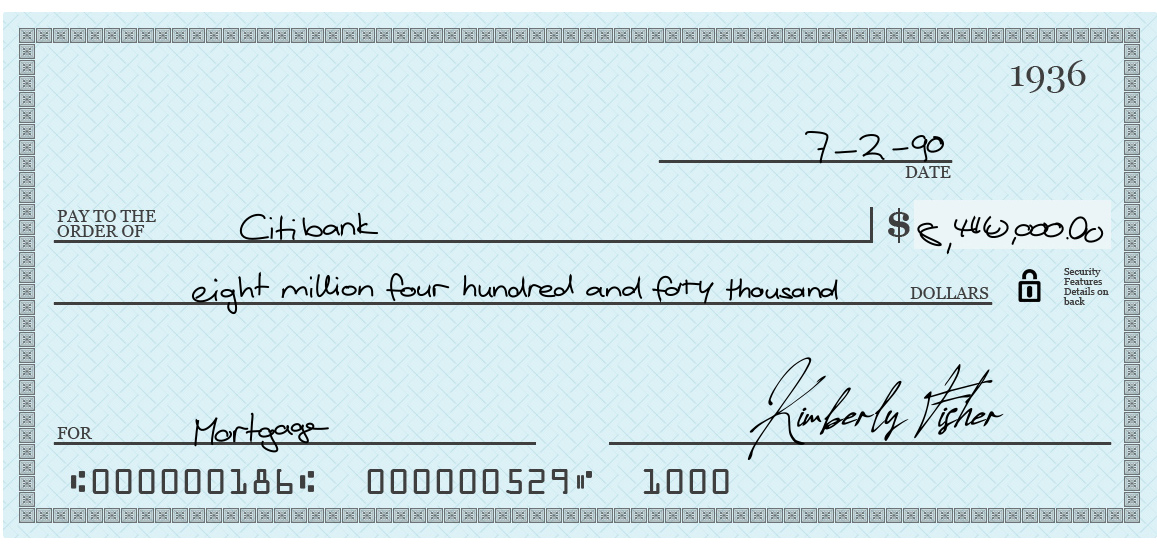 1936
7-2-90
DATE
PAY TO THE
ORDER OF Citibank $ 8,440,000.00
eight million four hundred and forty thousand DOLLARS
Security
Features
Details on
back
FOR Mortgage Kimberly Fisher
⑆000000186⑆ 000000529⑈ 1000